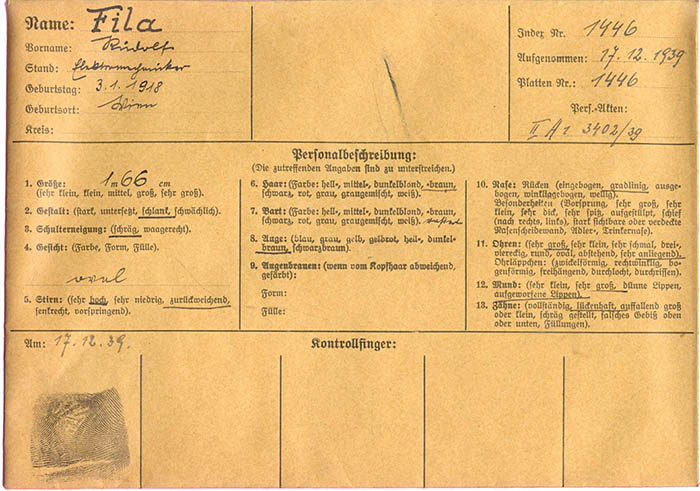 Name: Fila
Vorname: Rudolf
Stand: Elektromechaniker
Geburtstag: 3.1.1918
Geburtsort: Wien
Kreis:
Index Nr. 1446
Aufgenommen: 17.12.1939
Platten Nr.: 1446
Pers.-Akten:
II A 1 3402/39
Personalbeschreibung:
(Die zutreffenden Angaben sind zu unterstreichen.)
1. Größe: 1 m 66 cm
(sehr klein, klein, mittel, groß, sehr groß).
2. Gestalt: (stark, untersetzt, schlank, schwächlich).
3. Schulterneigung: (schräg, waagerecht).
4. Gesicht: (Farbe, Form, Fülle).
oval
5. Stirn: (sehr hoch, sehr niedrig, zurückweichend,
senkrecht, vorspringend).
6. Haar: (Farbe: hell-, mittel-, dunkelblond, -braun,
schwarz, rot, grau, graugemischt, weiß).
7. Bart: (Farbe: hell-, mittel-, dunkelblond, -braun,
schwarz, rot, grau, graugemischt, weiß).
8. Auge: (blau, grau, gelb, gelbrot, hell-, dunkel-
braun, schwarzbraun).
9. Augenbrauen: (wenn vom Kopfhaar abweichend,
gefärbt):
Form:
Fülle:
10. Nase: Rücken (eingebogen, gradlinig, ausge-
bogen, winkliggebogen, wellig).
Besonderheiten: (Vorsprung, sehr groß, sehr
klein, sehr dick, sehr spitz, aufgestülpt, schief
(nach rechts, links), stark sichtbare oder verdeckte
Nasenscheidewand, Adler-, Trinkernase).
11. Ohren: (sehr groß, sehr klein, sehr schmal, brei-,
viereckig, rund, oval, abstehend, sehr anliegend).
Ohrläppchen: (zwickelförmig, rechtwinklig, bo-
genförmig, freihängend, durchlocht, durchrissen).
12. Mund: (sehr klein, sehr groß, dünne Lippen,
aufgeworfene Lippen).
13. Zähne: (vollständig, lückenhaft, auffallend groß
oder klein, schräg gestellt, falsches Gebiß oben
oder unten, Füllungen).
Am: 17.12.39.
Kontrollfinger: